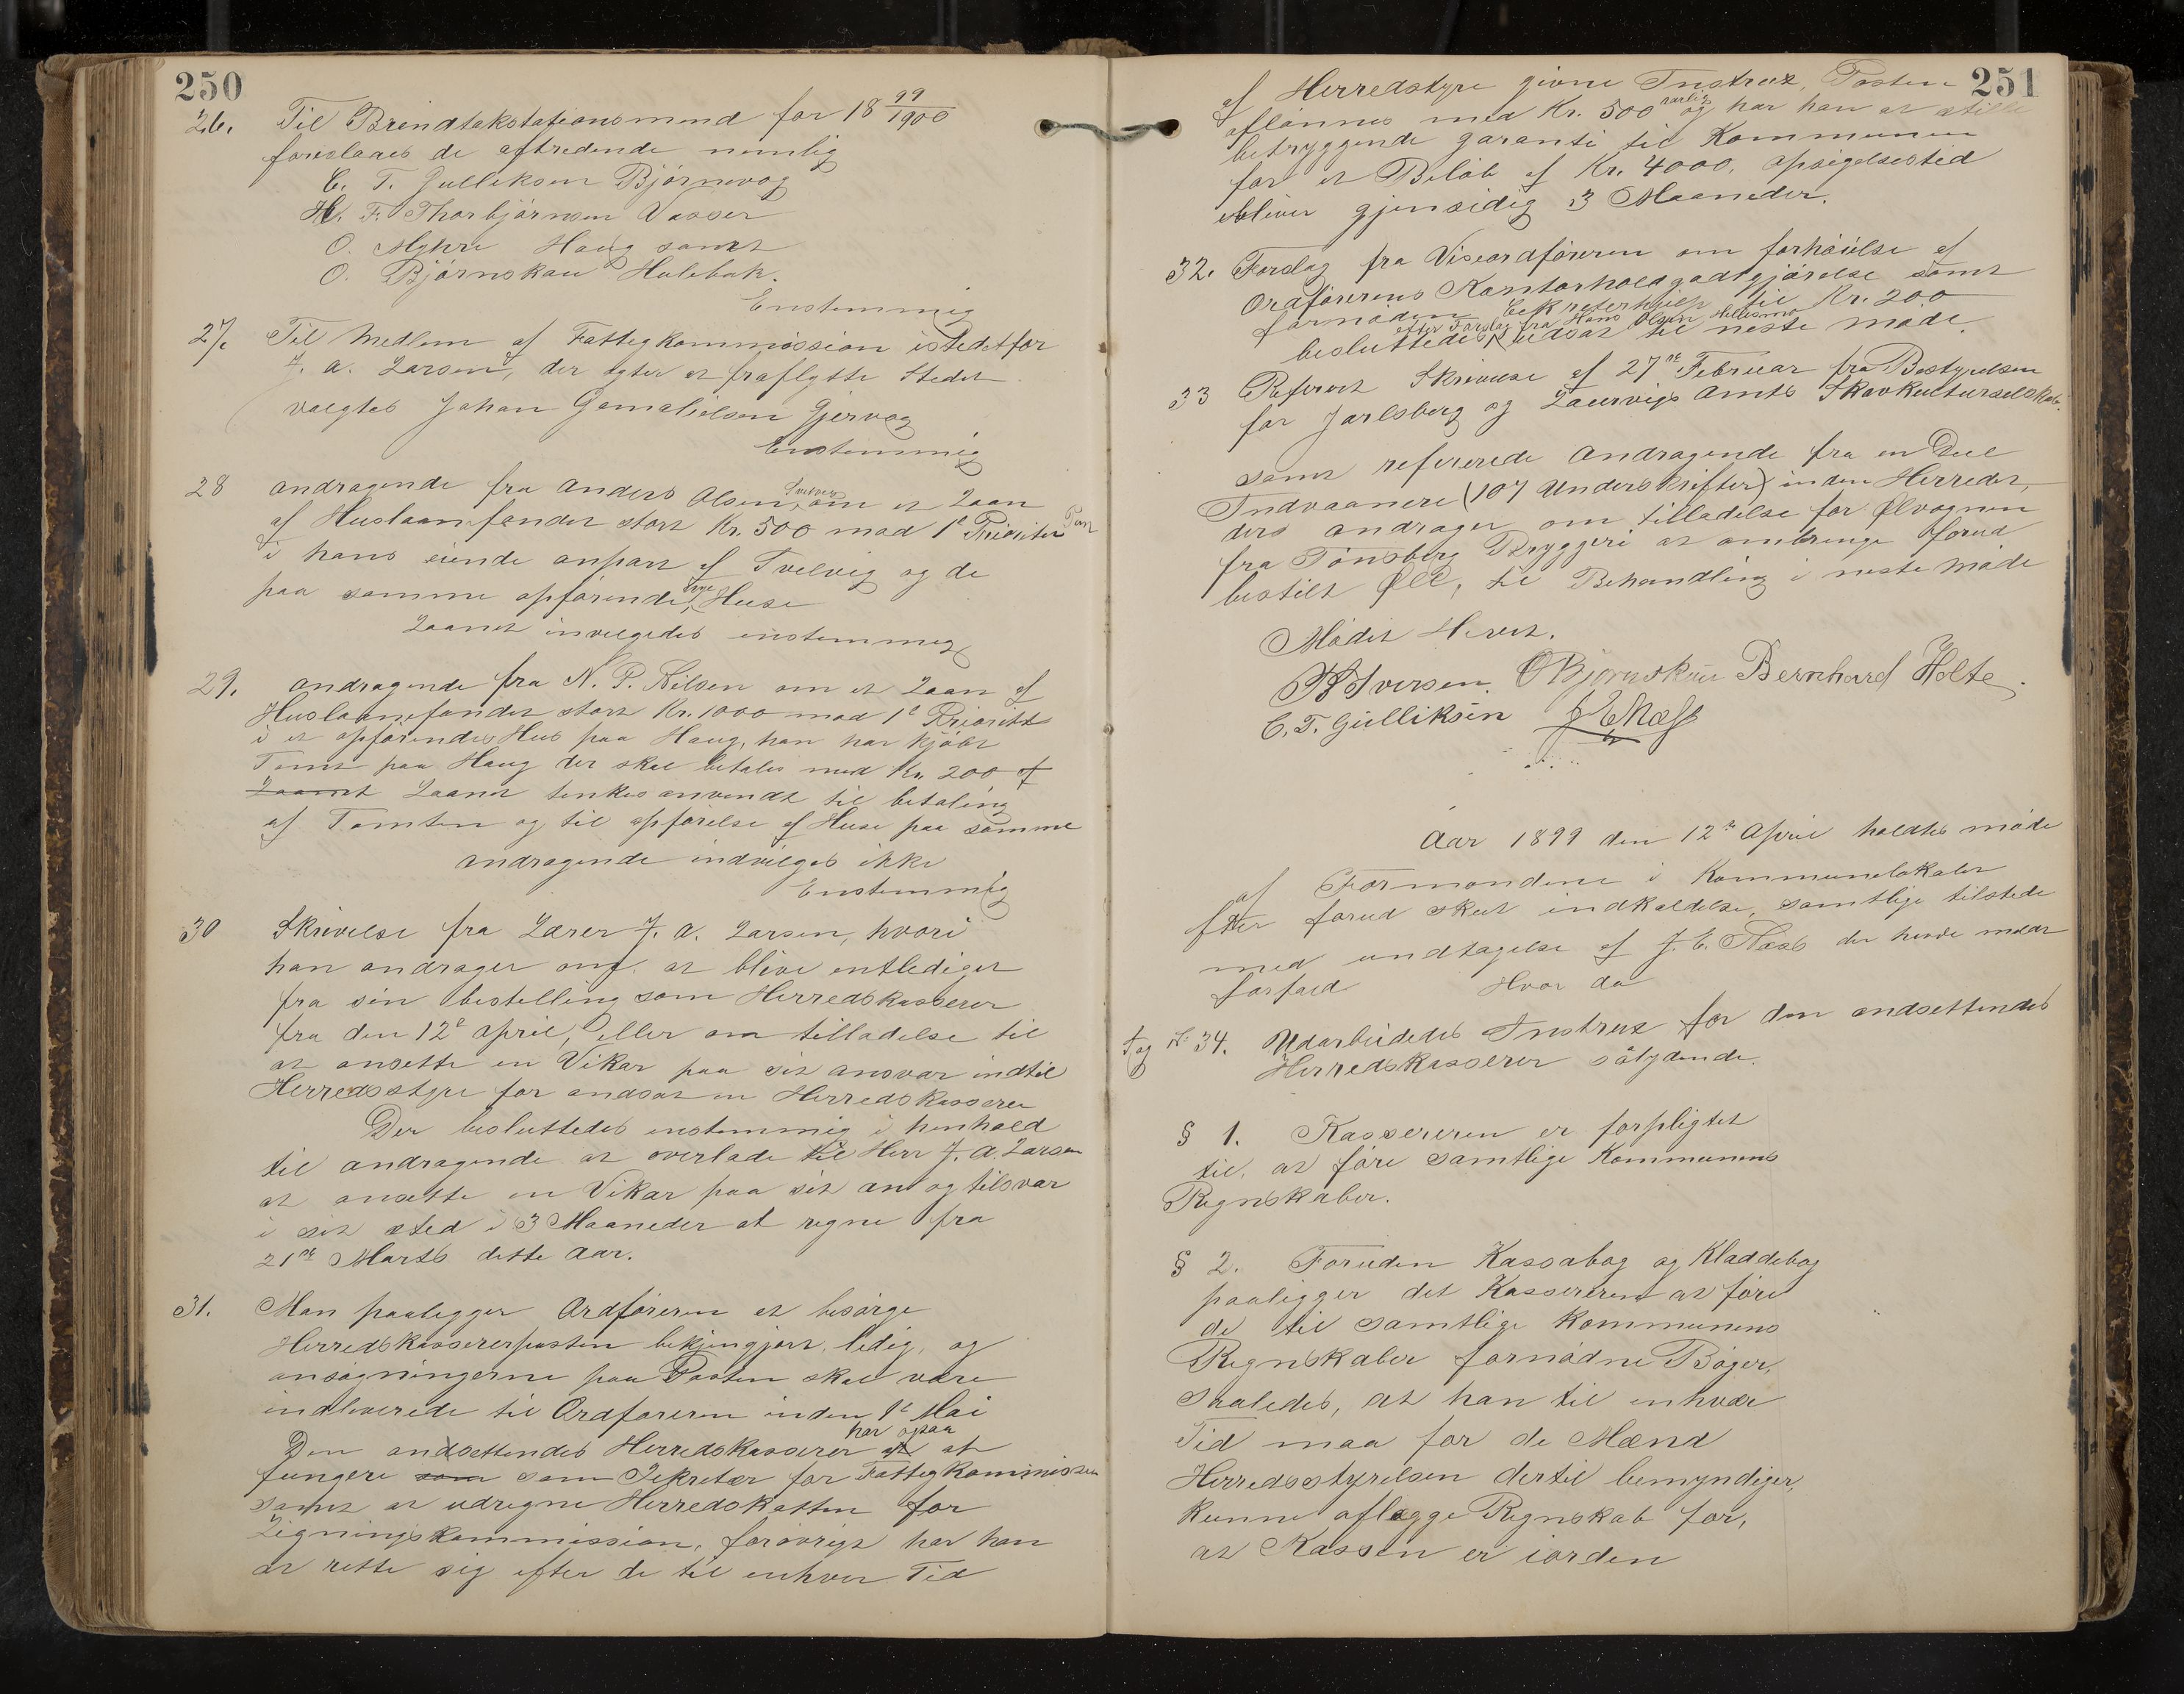 250
26. Til Brandtakstationsmend for 18 99/1900
foreslaaes de aftredende nemlig
C. T. Gulliksen Bjørnevog
H. F. Thorbjørnsen Vasser
O. Myhre Haug samt
O. Bjørnskau Hulebak.
Enstemmig
27. Til Medlem af Fattigkommission istedetfor
J. A. Larsen, der agter at fraflytte Stedet
valgtes Johan Gamalielsen Gjervog
Enstemmig
28 Andragende fra Anders Olsen, om et Laan
af Huslaanfondet stort Kr. 500 mod 1e Prioritet
i hans eiende anpart af Tvelvig og de
paa samme opførende nye Huse
Laanet invilgedes enstemmig
29. Andragende fra N. P. Nilsen om et Laan af
Huslaanefondet stort Kr. 1000 mod 1e Prioritet
i et opførendes Hus paa Haug, han har kjøbt
Tomt paa Haug der skal betales med Kr. 200 af
Laanet Laanet tenkes anvendt til betaling
af Tomten og til opførelse af Huse paa samme
Andragende indvilges ikke
Enstemmig
30 Skrivelse fra Lærer J. A. Larsen, hvori
han andrager om at blive entlediget
fra sin bestilling som Herredskasserer
fra den 12e April, eller om tilladelse til
at ansette en Vikar paa sit ansvar indtil
Herredsstyre for andsat en Herredskasserer
Der besluttedes enstemmig i henhold
til andragende at overlade til Herr J. A. Larsen
at ansette en Vikar paa sit an og tilsvar
i sit sted i 3 Maaneder at regne fra
21de Marts dette Aar.
31. Man paalegger Ordføreren at besørge
Herredskassererposten bekjengjort ledig, og
ansøgningerne paa Posten skal være
indleverede til Ordføreren inden 1e Mai
har opaa
Den andsettendes Herredskasserer at at
fungere som som Sekretær for Fattigkommission
samt at udregne Herredskatten for
Ligningskommission, forøvrigt har han
at rette sig efter de til enhver Tid
251
af Herredstyre givne Instrux, Posten
aflønnes med Kr. 500 aarlig og har han at stille
betryggende garanti til Kommunen
for et Beløb af Kr. 4000, opsigelsestid
bliver gjensidig 3 Maaneder.
32. Forslag fra Viseordføreren om forhøielse af
Ordførerens Kontorholdgodtgjørelse samt
fornøden Sekreterhjelp til Kr. 200
efter Forslag fra Hans Olsen Hellesmo
besluttedes udsat til neste møde.
33 Referert Skrivelse af 27de Februar fra Bestyrelsen
for Jarlsberg og Laurvigs Amts Skovkulturselskab.
samt refererede Andragende fra en Deel
Indvaanere (107 Underskrifter) inden Herredet,
ders andrager om tilladelse for Ølvognen
fra Tønsberg Bryggeri at ombringe forud
bestilt Øll, til Behandling i neste møde
Mødet Hevet.
Iversen. O Bjørnskau Bernhard Holte.
C. T. Gulliksen J E Næss
Aar 1899 den 12te April holdtes møde
af Formandene i Kommunelokalet
efter forud skeet indkaldelse, samtlige tilstede
med undtagelse af J. E. Næss der havde meldt
forfald Hvor da
Sag No 34. Udarbeidedes Instrux for den andsettendes
Herredskasserer sålydende.
§ 1. Kassereren er forpligtet
til, at føre samtlige Kommunens
Regnskaber.
§ 2. Foruden Kassabog og Kladdebog
paaligger det Kassereren at føre
de til samtlige Kommunens
Regnskaber fornødne Bøger,
saaledes, at han til enhver
Tid maa for de Mænd
Herredsstyrelsen dertil bemyndiger,
kunne aflægge Regnskab for,
at Kassen er iorden